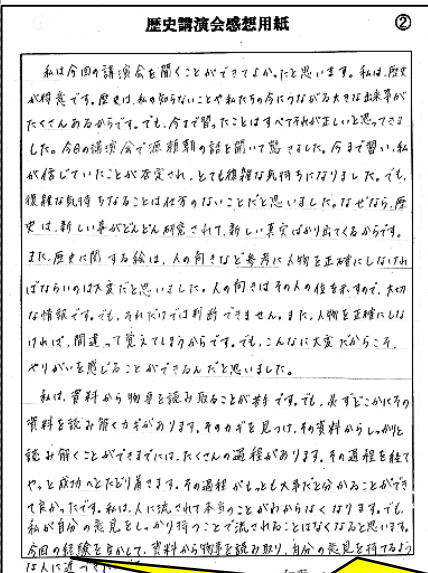 歴史講演会感想用紙 ②
私は今回の講演会を聞くことができてよかったと思います。私は、歴史
が得意です。歴史は、私の知らないことや私たちの今につながる大きな出来事が
たくさんあるからです。でも、今まで習ったことはすべてそれが正しいと思ってきま
した。今日の講演会で源頼朝の話を聞いて驚きました。今まで習い、私
が信じていたことが否定され、とても複雑な気持ちになりました。でも、
複雑な気持ちなることは仕方のないことだと思いました。なぜなら、歴
史は、新しい事がどんどん研究されて、新しい真実ばかり出てくるからです。
また、歴史に関する絵は、人の向きなど参考に人物を正確にしなけれ
ばならいのは大変だと思いました。人の向きはその人の位を示すので、大切
な情報です。でも、それだけでは判断できません。また、人物を正確にしな
ければ、間違って覚えてしまうからです。でも、こんなに大変だからこそ、
やりがいを感じることができるんだと思いました。
私は、資料から物事を読み取ることが苦手です。でも、必ずどこかにその
資料を読み解くカギがあります。そのカギを見つけ、その資料からしっかりと
読み解くことができまでには、たくさんの過程があります。その過程を経て
やっと成功へとたどり着きます。その過程がもっとも大事だと分かることができ
て良かったです。私は、人に流されて本当のことがわからなくなります。でも、
私が自分の意見をしっかり持つことで流されることはなくなると思います。
今回の経験を生かして、資料から物事を読み取り、自分の意見を持てるよう
な人に近づき